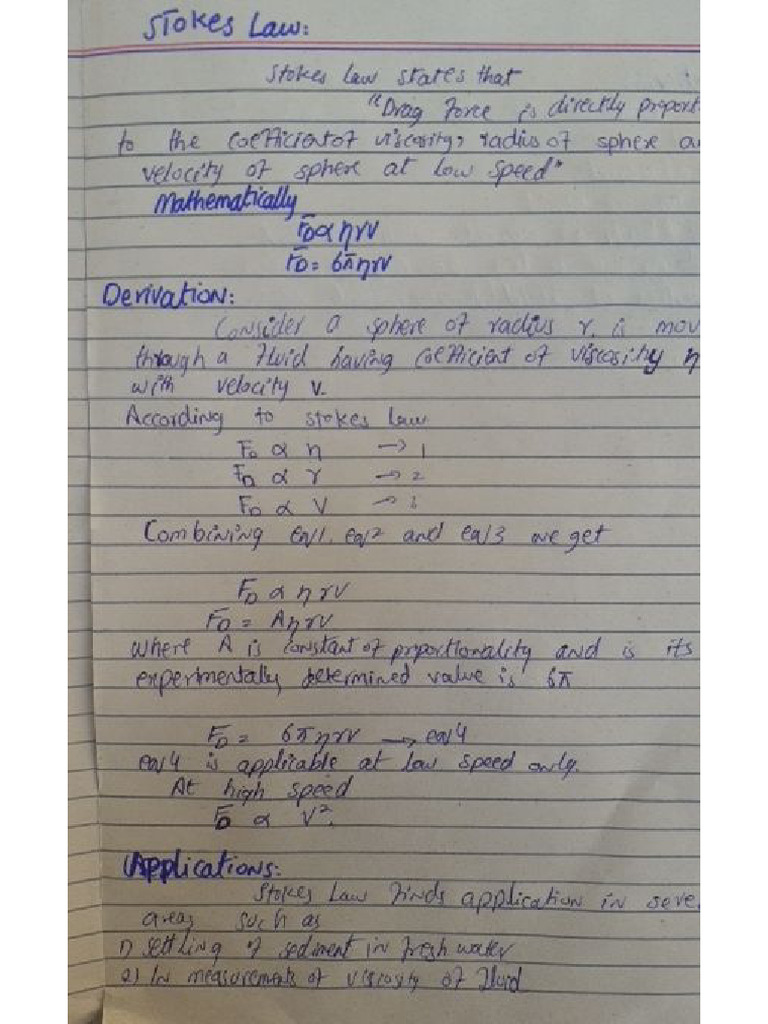 Stokes Law:
Stokes law states that
"Drag Force is directly proport
to the coefficient of viscosity, radius of sphere a
velocity of sphere at low speed"
Mathematically
FD α ηrv
FD = 6πηrv
Derivation:
Consider a sphere of radius r. is mov
through a fluid having coefficient of viscosity η
with velocity v.
According to stokes law
FD α η → 1
FD α r → 2
FD α v → 3
Combining eq/1, eq/2 and eq/3 we get
FD α ηrv
FD = Aηrv
where A is constant of proportionality and is its
experimentally determined value is 6π
FD = 6πηrv → eq/4
eq/4 is applicable at low speed only.
At high speed
FD α v².
Applications:
Stokes Law finds application in seve
areas such as
1) settling of sediment in fresh water
2) In measurements of viscosity of fluid